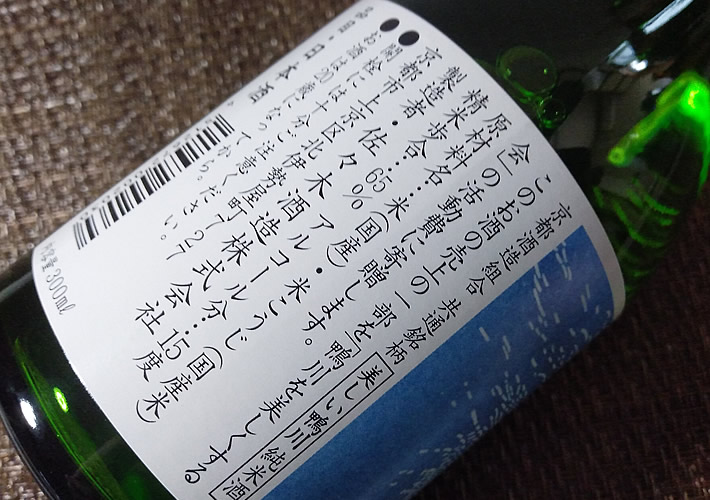 京都酒造組合 共通銘柄 美しい鴨川 純米酒
このお酒の売上の一部を「鴨川を美しくする
会」の活動費に寄贈します。
原材料名:米(国産)・米こうじ(国産米)
精米歩合:65% アルコール分:15度
製造者・佐々木酒造株式会社
京都市上京区北伊勢屋町727
●開栓には十分ご注意ください。
●お酒は20歳になってから。
日本酒
300ml